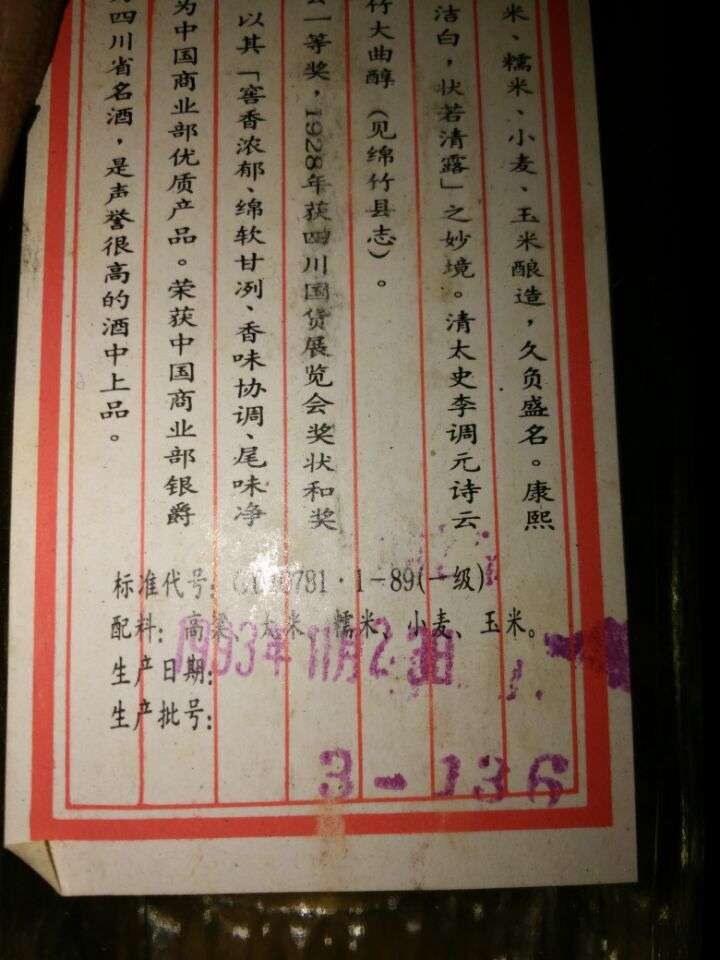 米、糯米、小麦、玉米酿造，久负盛名。康熙
洁白，状若清露」之妙境。清太史李调元诗云
竹大曲醇（见绵竹县志）。
一等奖，1928年获四川国货展览会奖状和奖
以其「窖香浓郁、绵软甘冽、香味协调、尾味净
为中国商业部优质产品。荣获中国商业部银爵
四川省名酒，是声誉很高的酒中上品。
标准代号：10781·1-89(一级)
配料：高粱、大米、糯米、小麦、玉米。
生产日期：1993年11月23日
生产批号：
3-136